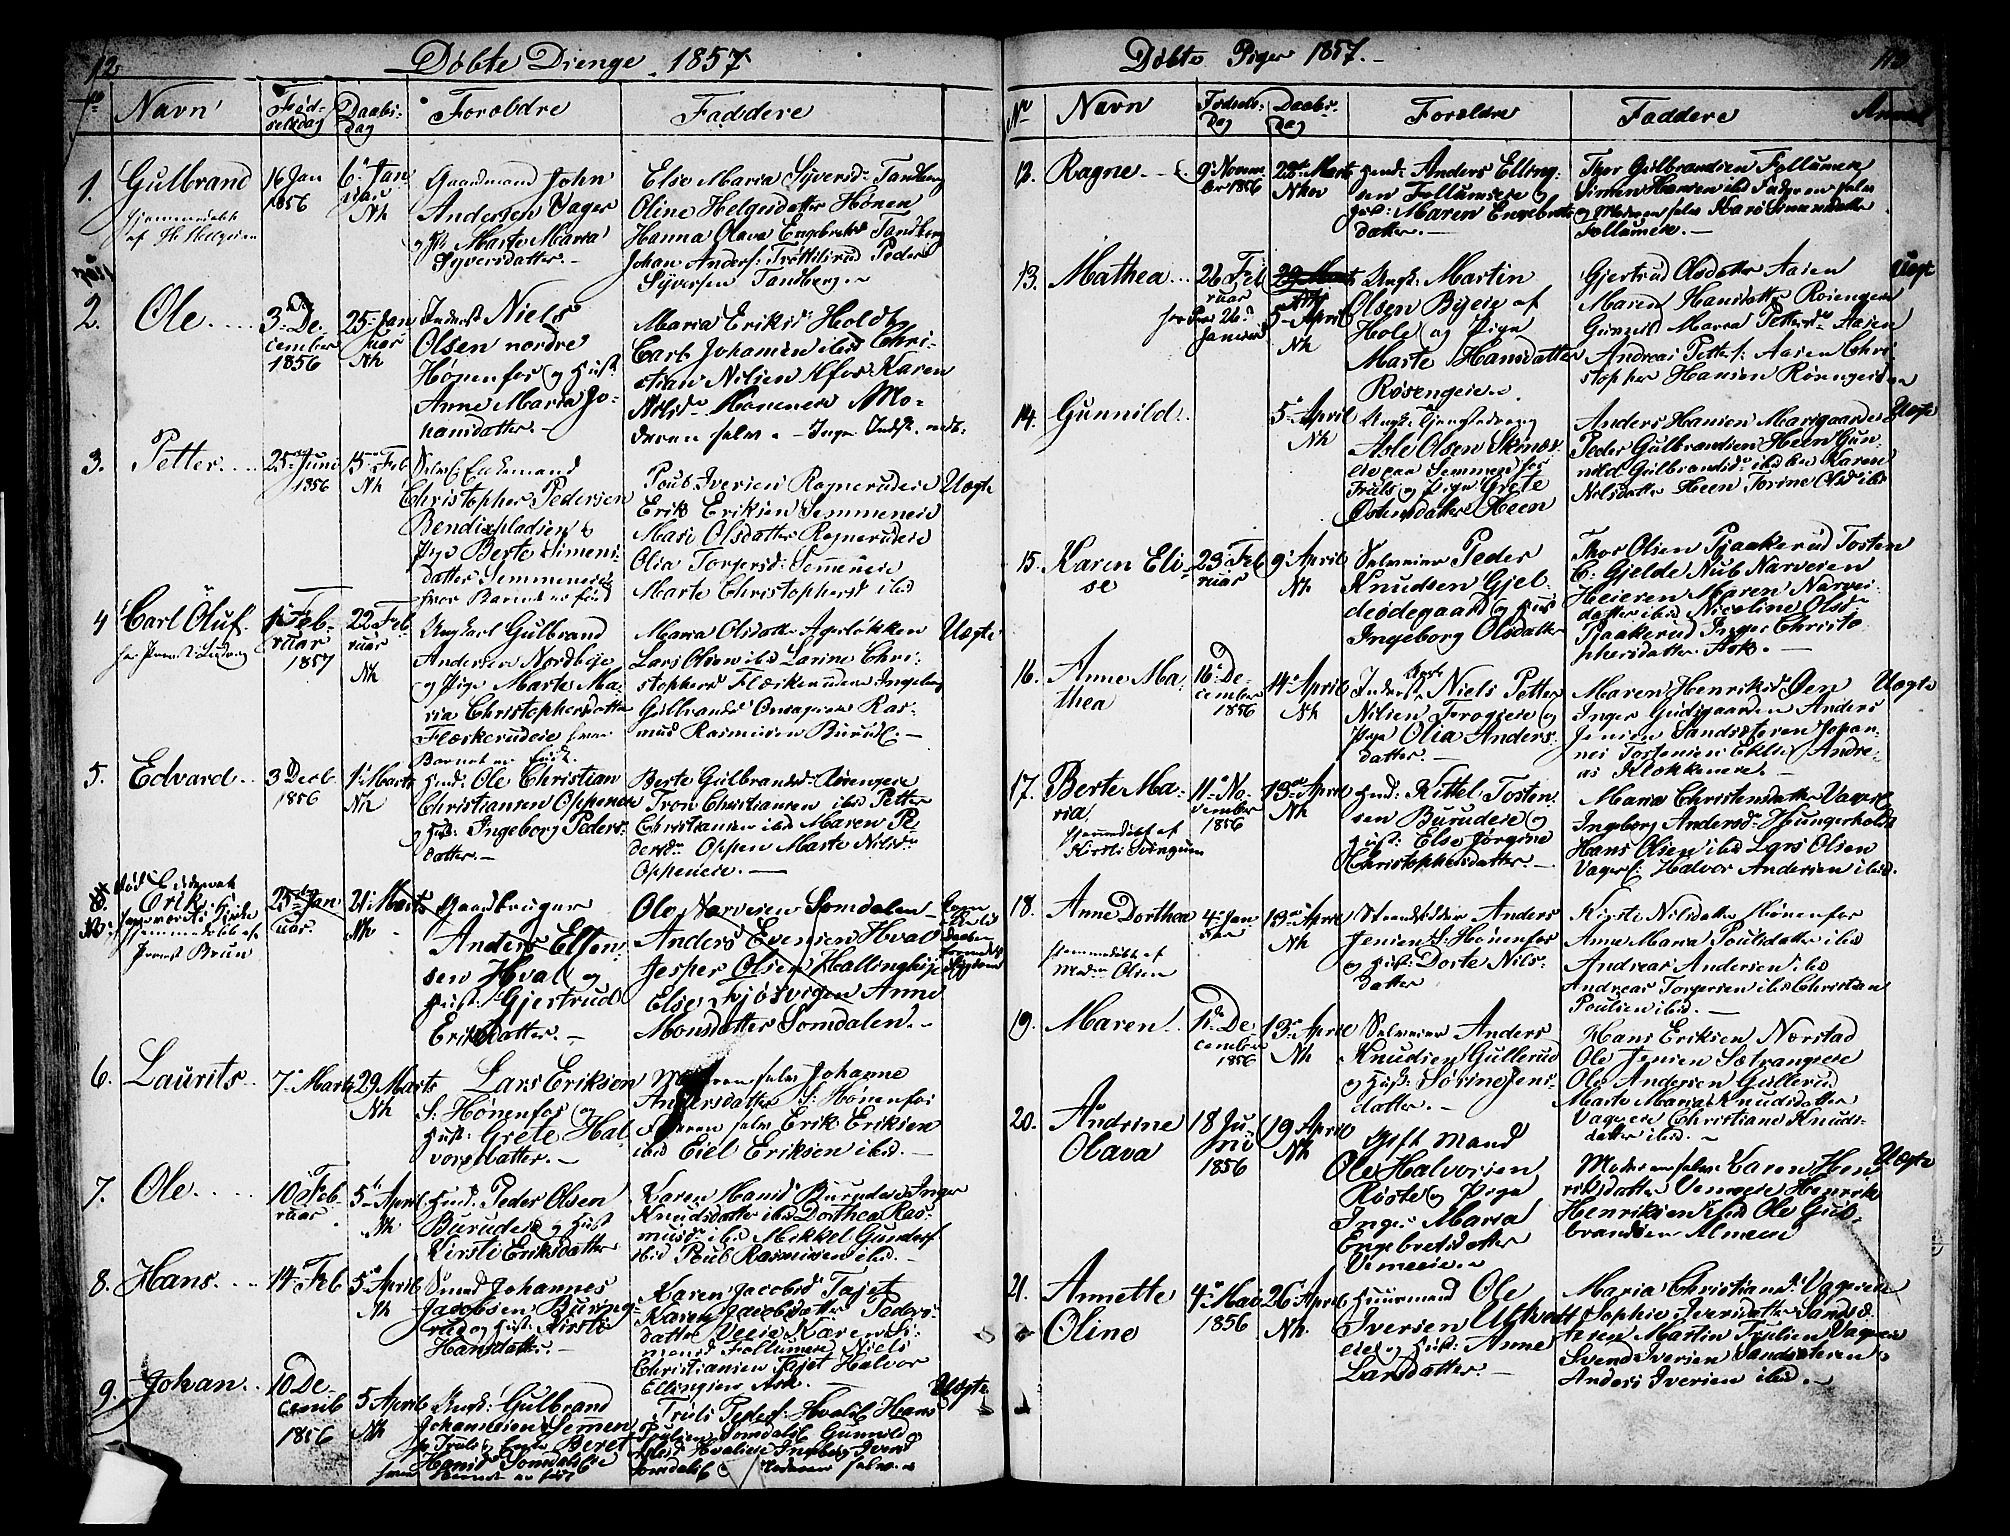 12
Døbte Drenge 1857
No
Navn
Fød-
selsdag
Daabs-
dag
Forældre
Faddere
1.
Gulbrand
hjemmedøbt
af H. Helgesen
16 Jan
1856
6 Jan
uar
Nk
Gaardmand John
Andersen Vager
og H: Marte Maria
Syversdatter. —
Else Maria Syversd. Tandberg
Oline Helgesdatter Hønen
Hanna Olava Engebretsd Tandberg
Johan Anders: Trøttilsrud Peder
Syversen Tandberg. —
2.
Ole
3 De-
cember
1856
25 Jan
uar
Nk
Inderst Niels
Olsen nordre
Hønenfos og Hust
Anne Maria Jo-
hansdatter. —
Maria Eriksd Holdt
Carl Johansen ibid Chri-
stian Nilsen Hfos Karen
Nilsd Honnere Mo-
deren selv. —
3.
Petter
25 Juni
1856
15 Feb
Nk
Enkemand
Christopher Pedersen
Bendixpladsen &
Pige Berte Simens-
datter Semmeneie
hvor Barnet er født
Poul Iversen Ragnerudeie
Erik Eriksen Semmeneie
Mari Olsdatter Ragnerudeie
Olia Torgersd: Semmeneie
Marte Christophersd ibid
Uægte
4
Carl Oluf
1 Feb-
ruar
1857
22 Feb-
ruar
Nk
Ungkarl Gulbrand
Andersen Nordbyeie
og Pige Marte Ma-
ria Christophersdatter
Flaskerudeie hvor
Barnet er født.
Maria Olsdatter Agerløkken
Lars Olsen ibid Larine Chri-
stophersd Flaskerudeie Ingeborg
Gulbrandsd Onsagereie Ras-
mus Rasmusen Burud. —
Uægte
5.
Edvard
3 Decb
1856
1 Marts
Nk
Husm: Ole Christian
Christiansen Oppeneie
og Hust: Ingeborg Peders-
datter. —
Berte Gulbrandsd
Tron Christiansen ibid Petter
Christiansen ibid Maren Pe-
dersd. Oppen Marte Nilsd
Oppeneie. —
Erik
Præst Brun
25 Jan
uar.
21 Marts
Nk
Gaardbruger
Anders Ellen-
sen Hval og
Hust: Gjertrud
Eriksdatter. —
Ole Narvesen Somdalen
Anders Evensen Hval
Jesper Olsen Hallingby
Else Fjøsvigen Anne
Monsdatter Somdalen. —
6.
Laurits
7 Marts
29 Marts
Nk
Lars Eriksen
S: Hønenfos og
Hust: Grete Hal-
vorsdatter. —
Moderen selv Johanne
Andersdatter S: Hønenfos
Faderen selv Erik Eriksen
ibid Eiel Eriksen ibid. —
7.
Ole
10 Feb-
ruar
5 April
Nk
Husm: Peder Olsen
Burudeie og Hust
Kirsti Eriksdatter
Karen Hansd Burudeie Inger
Knudsdatter ibid Dorthea Ras-
musd ibid Mikkel Gundersen
ibid Poul Rasmusen ibid. —
8.
Hans
14 Feb
5 April
Nk
Smed Johannes
Jacobsen Buring-
rud og Hust: Kirsti
Hansdatter. —
Karen Jacobsd Tajet
Karen Jacobsdatter Peders-
datter Veeie Karen Si-
mensd Follumeie Niels
Christiansen Tajet Halvor
Ellingsen Ask. —
9.
Johan
10 De-
cemb
1856
5 April
Nk
Ungk: Gulbrand
Johannesen Semmen
Hansd Somdalseie
Truls Peders: Hvalseie Hans
Poulsen Somdalseie Gunnild
Hvalseie Ingeborg Iversd
Somdalseie Moderen selv. —
Uægte
Døbte Piger 1857. —
113
No
Navn
Fødsels-
Dag
Daabs-
Dag
Forældre
Faddere
Anmk
12.
Ragne
9 Novem
ber 1856
22 Marts
Nk
Husm: Anders Elling-
sen Follumeie og
Hust: Maren Engebrets-
datter. —
Thor Gulbrandsen Follumeie
Simen Hansen ibid Faderen selv
og Moderen selv Kari Simensdatter
Follumeie. —
13.
Mathea
26 Feb
ruar
Januar
29 Marts
5 April
Nk
Ungk: Martin
Olsen Byeie af
Hole og Pige
Marte Hansdatter
Rosengeie.
Gjertrud Olsdatter Aasen
Maren Hansdatter Rosengen
Gunild Maria Petersd Aasen
Andreas Petters: Aasen Chri-
stopher Hansen Rosengeien
Uægt
14.
Gunnild
5 April
Nk
Ungk: Tjenestedreng
Asle Olsen Skinnes-
eie
og Pige Grete
Ostensdatter Heen
Anders Hansen Moesgaarden
Peder Gulbrandsen Heen Gun-
nild Gulbrandsd. ibid Karen
Nilsdatter Heen Torine Olsd ibid
Uægte
15.
Karen Eli-
se
23 Feb
ruar
9 April
Nk
Selveier Peder
Knudsen Gjel-
deødegaard og Hust
Ingeborg Olsdatter
Thor Olsen Pjaakerud Tosten
C: Gjelde Nub Narvesen
Heieren Maren Narves-
datter ibid Nicoline Olsd
Pjaakerud Inger Christo-
phersdatter Ask. —
16.
Anne Ma-
thea
16 De-
cember
1856
14 April
Nk
Inderst Niels Petter
Nilsen Frogeie og
Pige Olia Anders-
datter. —
Maren Henriksd Øen
Inger Gudsgaarden Anders
Jensen Sandsæteren Johan-
nes Tostensen Eklse Andre-
as Klokkereie. —
Uægte
17.
Berte Ma-
ria,
hjemmedøbt af
Kirsti Svingum
11 No-
vember
1856
13 April
Nk
Husm: Kittel Tosten
sen Burudeie og
Hust: Else Jørgine
Christophersdatter. —
Maria Christensdatter Vagers
Ingeborg Andersd. Hungerholdt
Hans Olsen ibid Lars Olsen
Vagers: Halvor Andersen ibid.
18.
Anne Dorthea
hjemmedøbt af
Madm Olsen
4 Jan
uar
13 April
Nk
Strandsidder Anders
Jensen S: Hønenfos
og Hust: Dorte Nils-
datter
Kirsti Nilsdatter Hønenfos
Anne Maria Poulsdatter ibid
Andreas Andersen ibid
Andreas Torgersen ibid Christian
Poulsen ibid. —
19.
Maren
11 De-
cember
1856
13 April
Nk
Selveier Anders
Knudsen Gullerud
og Hust: Sørine Jens-
datter. —
Hans Eriksen Nærstad
Ole Jensen Sætrangeie
Ole Andersen Gullerud
Marte Maria Knudsdatter
Vageeie Christiane Knuds-
datter ibid. —
20.
Andrine
Olava
18 Ju-
ni
1856
19 April
Nk
Gift Mand
Ole Halvorsen
og Pige
Inger Maria
Engebretsdatter
Vemeeie. —
Moderen selv Karen Hen-
riksdatter Vemeeie Henrik
Henriksen ibid Ole Gul-
brandsen Almeeie
Uægte
21.
Annette
Oline
4 Mai
1856
26 April
Nk.
Huusmand Ole
Iversen
og Hust: Anne
Larsdatter. —
Maria Christiansd: Vagereie
Sophie Iversdatter Sandsæ-
teren Martin Trulsen Vagereie
Svend Iversen Sandsæteren
Anders Iversen ibid. —